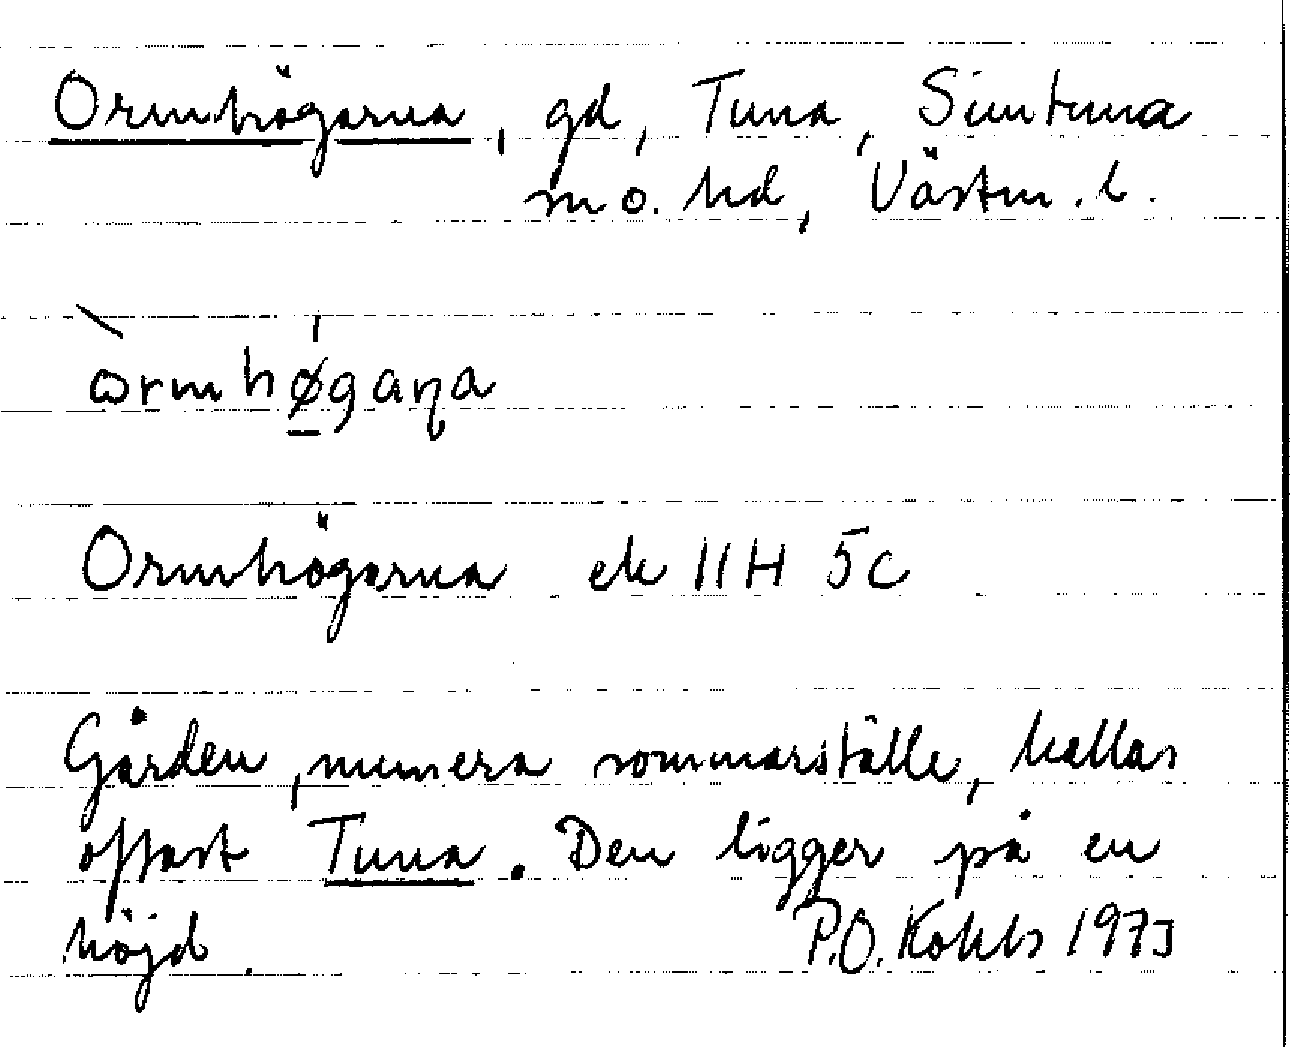 Ormhögarna, gd, Tuna, Simtuna
m o. hd, Västm. l.
ɷ̀rmhǿ̲gaɳa
Ormhögarna ek 11H 5c
Gården, numera sommarställe, kallas
oftast Tuna. Den ligger på en
höjd. P.O. Kohls 1973